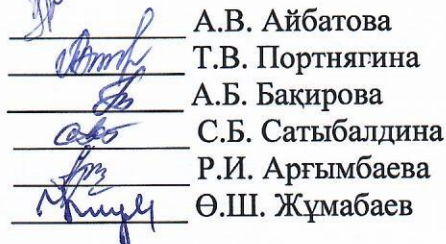 А.В. Айбатова
Т.В. Портнягина
А.Б. Бақирова
С.Б. Сатыбалдина
Р.И. Арғымбаева
Ө.Ш. Жұмабаев